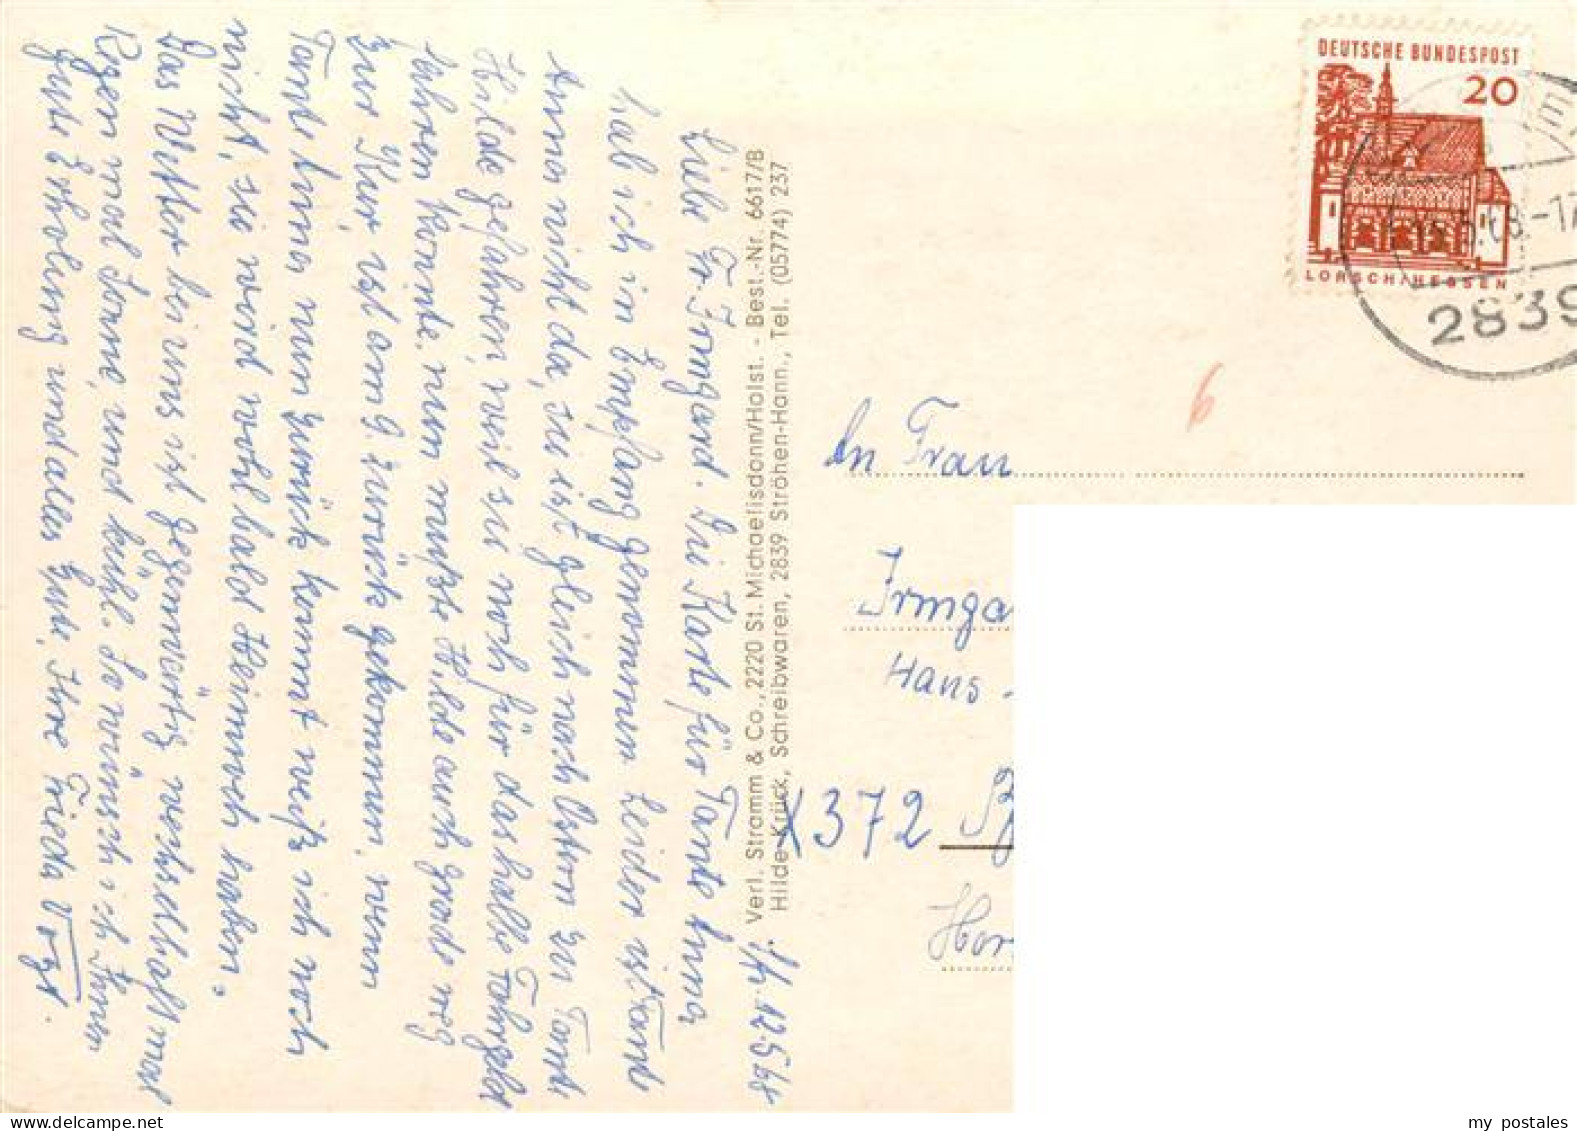 Str. 12.5.68
Liebe Fr. Irmgard. Die Karte für Tante Anna
hab ich in Empfang genommen Leider ist Tante
Anna nicht da, sie ist gleich nach Ostern zu Tante
Hilde gefahren, weil sie noch für das halbe Fahrgeld
fahren konnte. nun mußte Hilde auch grade weg
zur Kur, ist am 9. zurück gekommen, wenn
Tante Anna nun zurück kommt weiß ich noch
nicht, sie wird wohl bald Heimweh haben.
Das Wetter bei uns ist gegenwärtig wechselhaft mal
Regen mal Sonne, und kühl. So wünsch ich Ihnen
gute Erholung und alles Gute, Ihre Frieda Vogt.
Verl. Stramm & Co., 2220 St. Michaelisdonn/Holst. - Best.-Nr. 6617/B
Hilde Krück, Schreibwaren, 2839 Ströhen-Hann., Tel. (05774) 237
DEUTSCHE BUNDESPOST
20
LORSCH/HESSEN
68.-17
2839
6
An Frau
Irmga
Hans -
X372
Hor
my postales